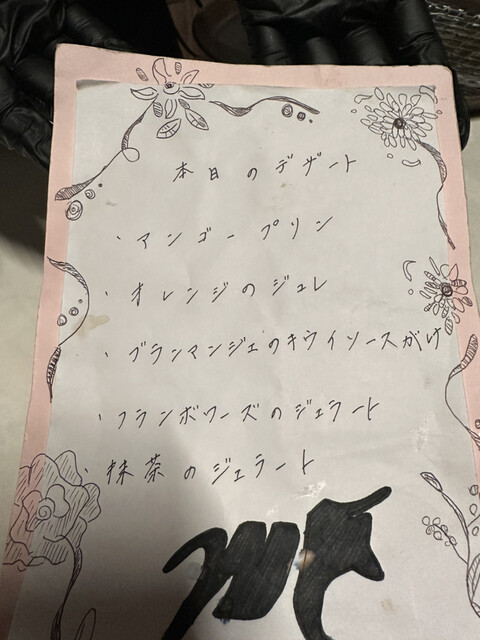 本日のデザート
・マンゴープリン
・オレンジのジュレ
・ブランマンジェのキウイソースがけ
・フランボワーズのジェラート
・抹茶のジェラート